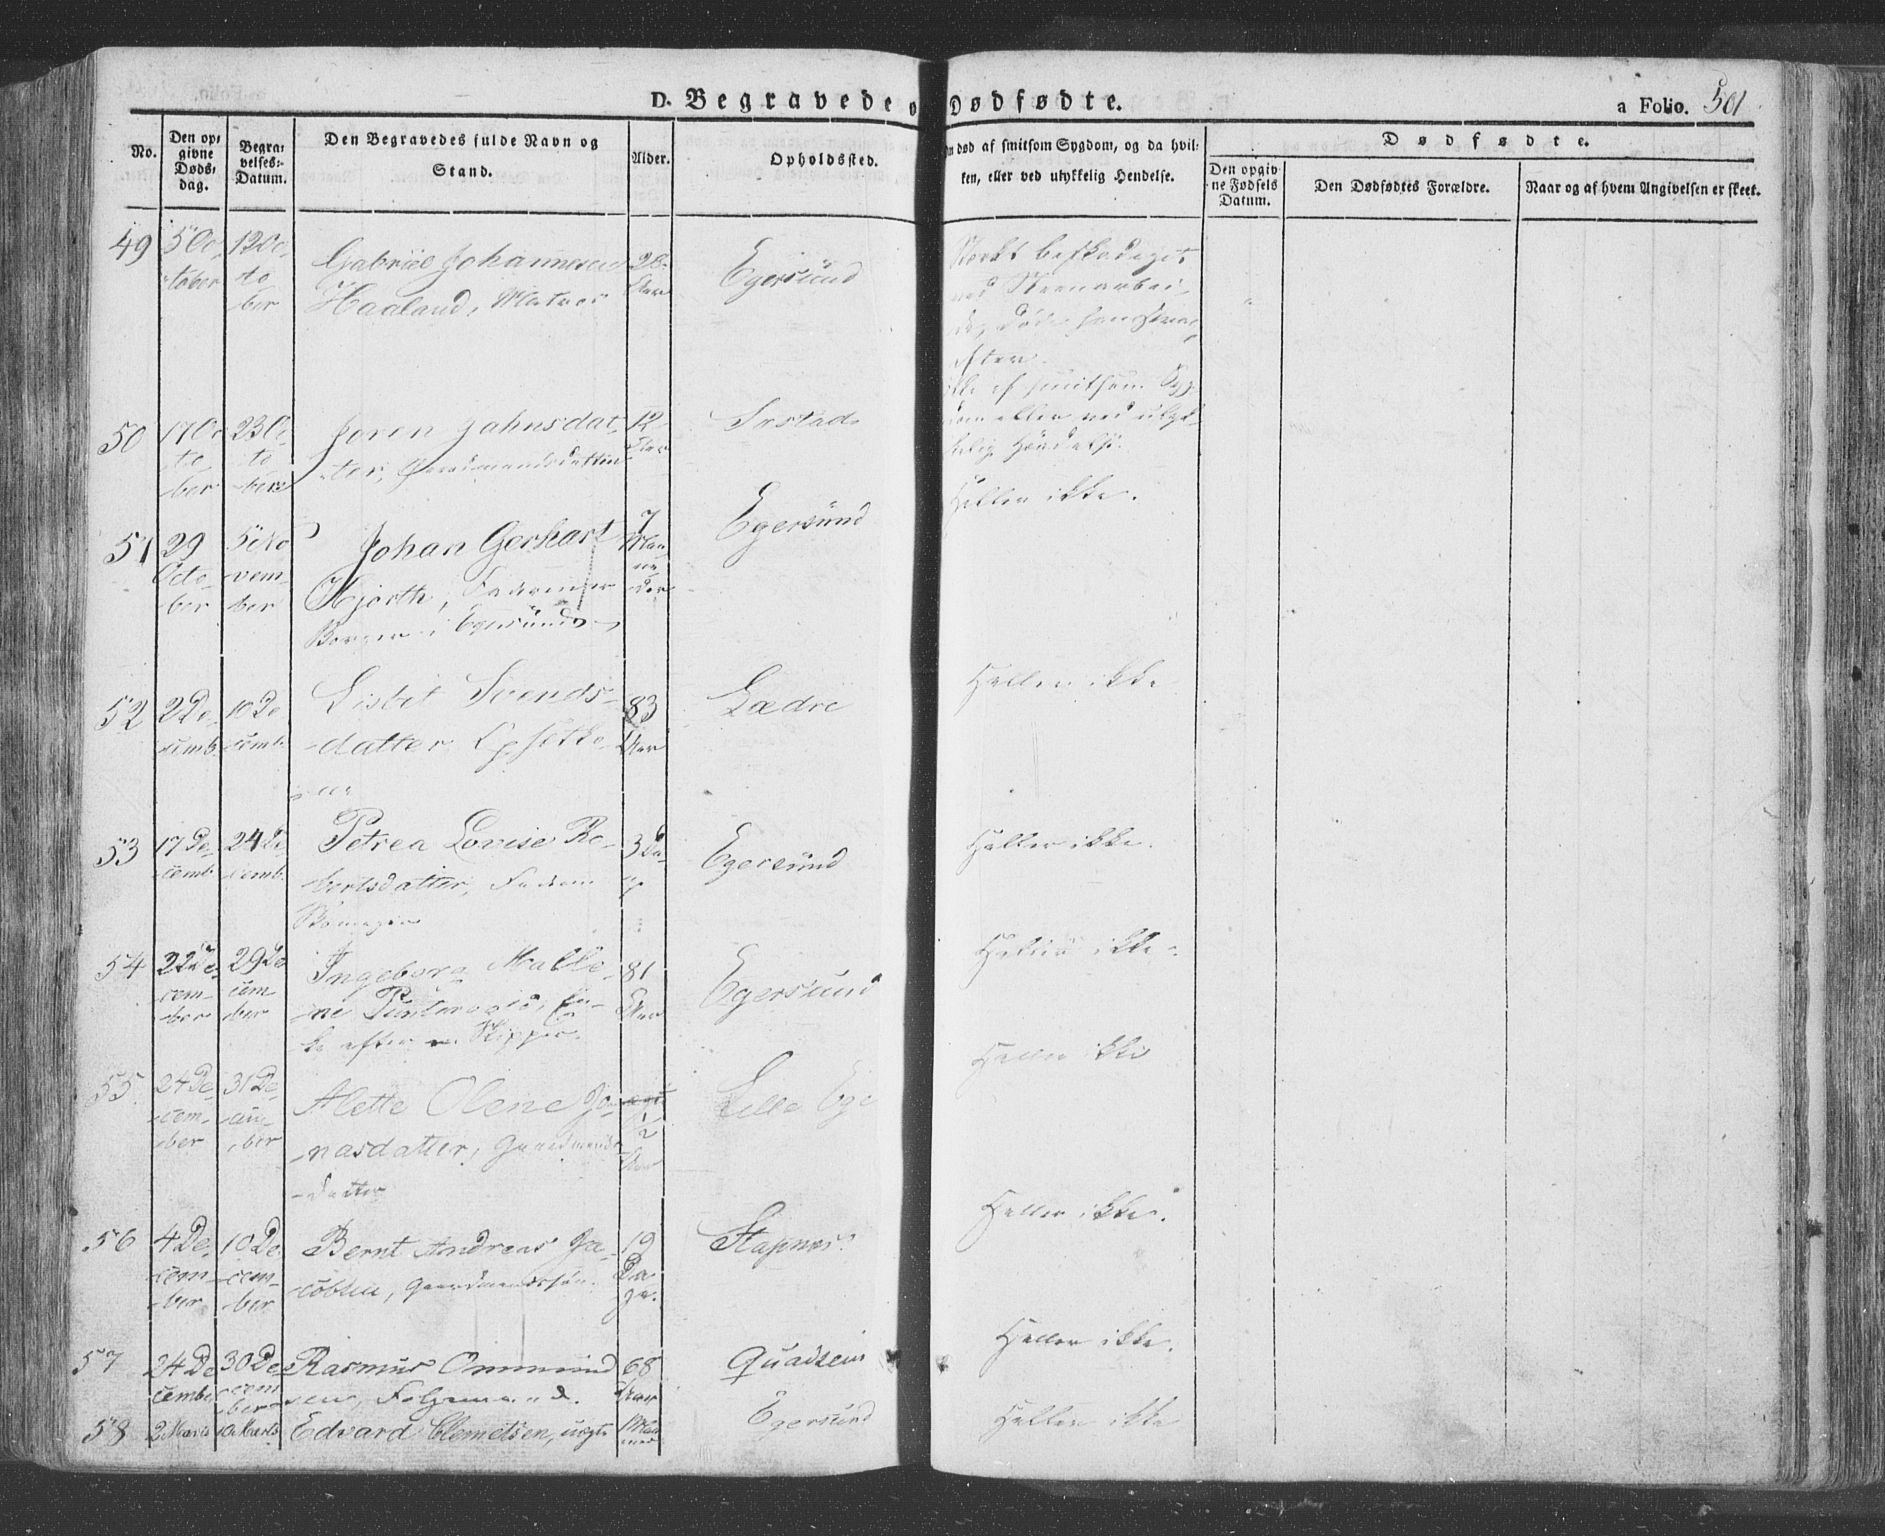 D. Begravede o Dødfødte.
a Folio. 501
No.
Den op-
givne
Døds-
dag.
Begra-
velses-
Datum.
Den Begravedes fulde Navn og
Stand.
Alder.
Opholdssted.
død af smitsom Sygdom, og da hvil-
ken, eller ved ulykkelig Hendelse.
Dødfødte.
Den opgiv-
ne Fødsels
Datum.
Den Dødfødtes Forældre.
Naar og af hvem Angivelsen er skeet.
49
5 Oc-
tober
12 Oc-
to-
ber
Gabriel Johannesen
Haaland, Matros
Aar
Egersund
Stærkt beskadiget
ved Steenarbei-
efter
50
17 Oc-
to-
ber
23 Oc-
to-
ber
Joren Jahnsdat-
ter, Gaardmandsdatter
12
Aar
Irstad
ikke af smitsom Syg-
dom eller ved ulyk-
kelig Hændelse.
51
29
Octo-
ber
5te No-
vem-
ber
Johan Gerhart
Hjorth, Faderen er
Borger i Egersund
7
Maa-
ne-
der
Egersund
Heller ikke.
52
2 De-
cemb.
10 De-
cemb.
Lisbet Svends-
datter
83
Aar
Lædre
Heller ikke
53
17 De-
cemb.
24 De-
cemb.
Petrea Lovise Ro-
bertsdatter, Faderen
Skomager
3 Da-
ge
Egersund
Heller ikke.
54
22 De-
cem-
ber
29 De-
cem-
ber
Ingeborg Malle-
ne, En-
ke efter en Skipper.
81
Aar
Egersund
Heller ikke.
55
24 De-
cem-
ber
31 De-
cem-
ber
Alette Olene Jo-
nasdatter, Gaardmands-
datter
1/2
Aar
Lille Ege
Heller ikke
56
4 De-
cem-
ber
10 De-
cem-
ber
Bernt Andreas Ja-
cobsen, Gaardmandssøn.
19
Da-
ge.
Stapnes.
Heller ikke.
57
24 De-
cember
30 De-
cem-
ber
Rasmus Ommund-
sen, Folgemand.
68
Aar
Quadsein
Heller ikke.
58
2 Marts
10 Marts
Edvard Clemetsen, uægte
Egersund
Heller ikke